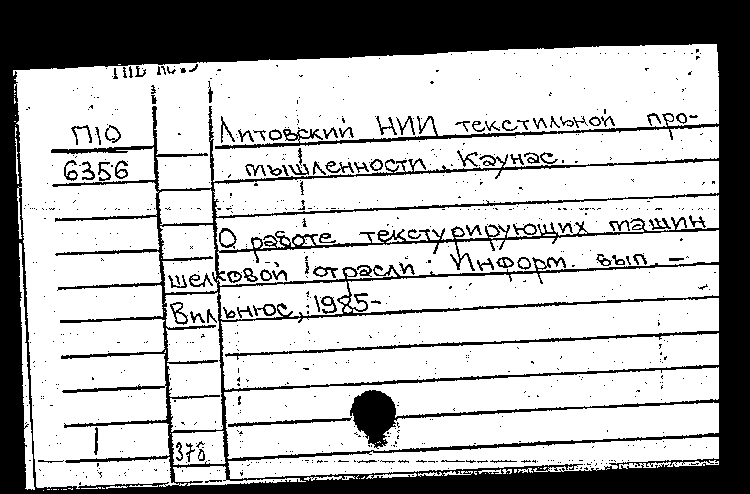 П10
6356
Литовский НИИ текстильной про-
мышленности. Каунас.
О работе текстурирующих машин
шелковой отрасли: Информ. вып. –
Вильнюс, 1985-
378